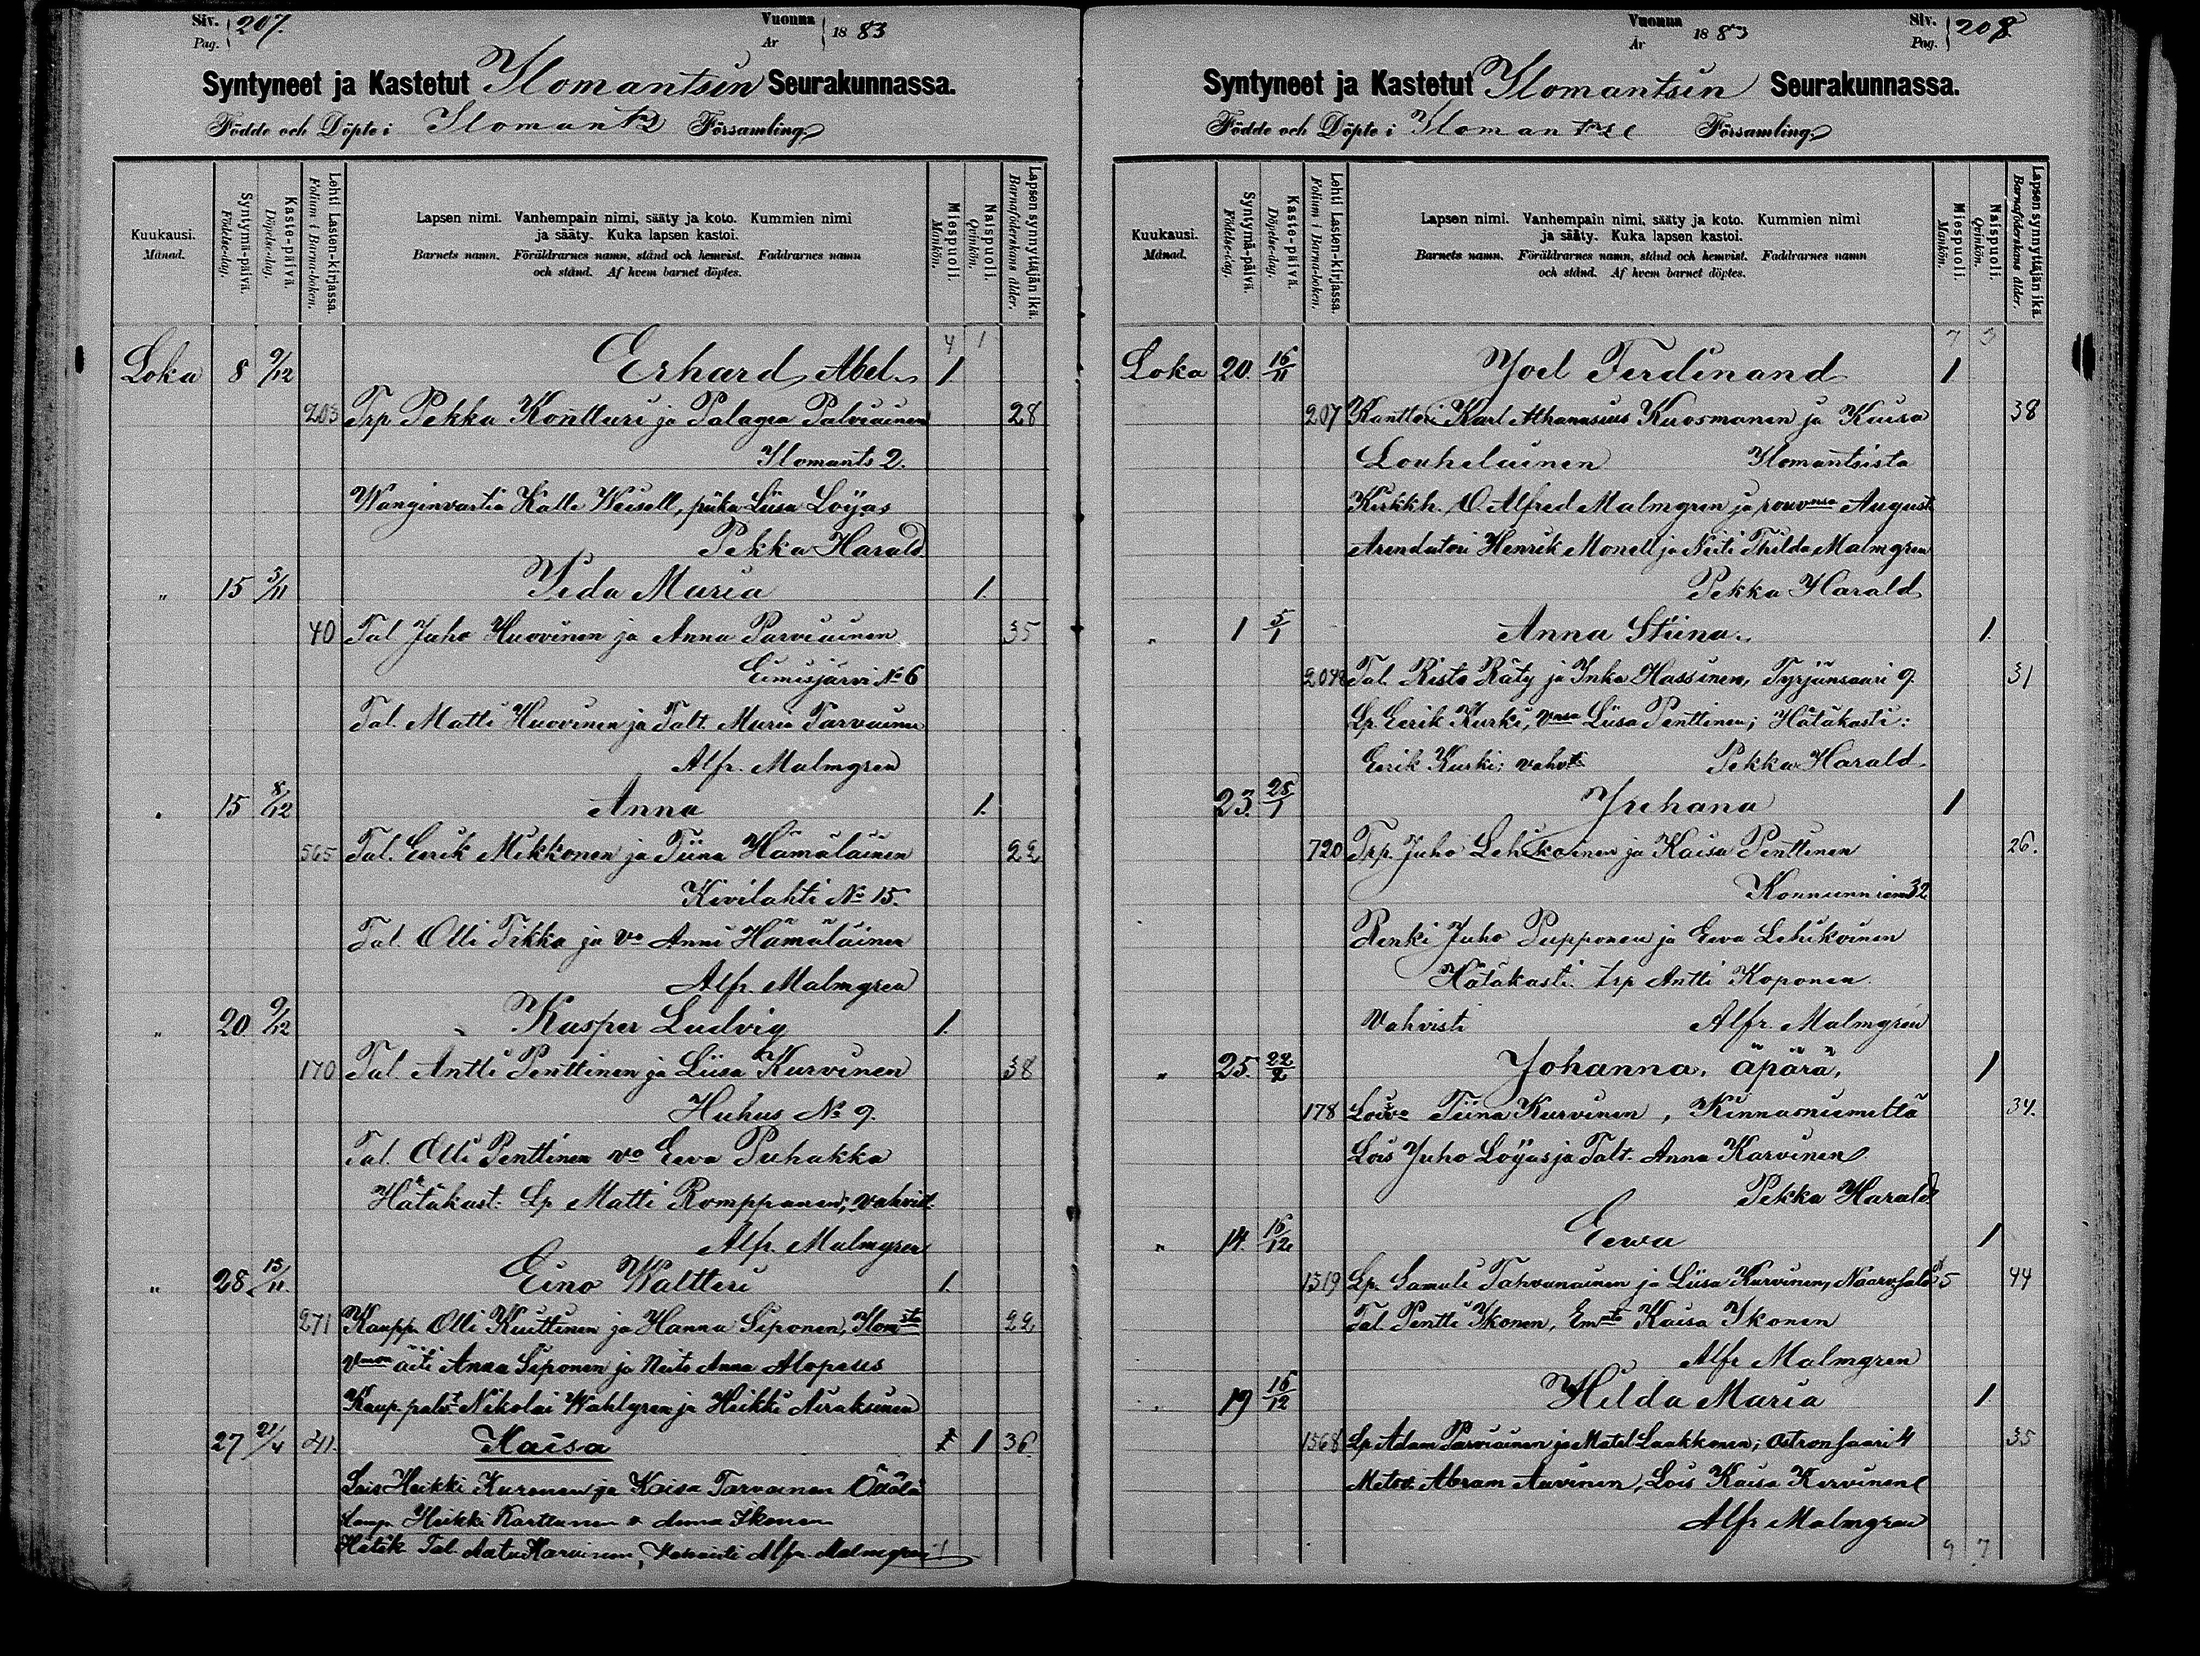 Siv. Pag. 207.
Vuonna År 1883
Syntyneet ja Kastetut Ilomantsin Seurakunnassa.
Födde och Döpte i Ilomants Församling
Kuukausi. Månad.
Syntymä-päivä. Födelse-dag.
Kaste-päivä. Döpelse-dag.
Lehti Lasten-kirjassa. Folium i Barna-boken.
Lapsen nimi. Vanhempain nimi, sääty ja koto. Kummien nimi
ja sääty. Kuka lapsen kastoi.
Barnets namn. Föräldrarnes namn, stånd och hemvist. Faddrarnes namn
och stånd. Af hvem barnet döptes.
Miespuoli. Mankön.
Naispuoli. Qvinkön.
Lapsen synnyttäjän ikä. Barnaföderskans ålder.
4 1
Loka 8 9/12 Erhard Abel 1
203 Trp Pekka Kontturi ja Palagea Palviainen 28
Ilomants 2.
Wanginvartia Kalle Weisell, piika Liisa Löyas
Pekka Harald
" 15 3/11 Iida Maria 1.
40 Tal. Juho Huovinen ja Anna Parviainen 35
Eimisjärvi No 6
Tal. Matti Huovinen ja Talt. Maria Tarvainen
Alfr. Malmgren
" 15 8/12 Anna 1.
565 Tal. Eerik Mikkonen ja Tiina Hämäläinen 22
Kivilahti No 15.
Tal. Olli Tikka ja vo Anni Hämäläinen
Alfr. Malmgren
" 20 9/12 Kasper Ludvig 1.
170 Tal. Antti Penttinen ja Liisa Kurvinen 38
Huhus No 9.
Tal. Olli Penttinen vo Eeva Puhakka
Hätäkast: Lp Matti Romppanen; vahvist.
Alfr. Malmgren
" 28 13/11 Eino Waltteri 1.
271 Kaupp. Olli Kiuttinen ja Hanna Siponen, Ilomsta 22
äiti Anna Siponen ja Neito Anna Alopeus
Kaup. palv. Nikolai Wahlgren ja Heikki Airaksinen
27 21/4 41. Kaisa 1 36
Lois Heikki Kuronen ja Kaisa Tarvanen
Heikki Karttunen o Anna Ikonen
Hätäk Tal. Aatu Karvinen, Vahvisti Alfr. Malmgren
Vuonna År 1883
Siv. Pag. 208
Syntyneet ja Kastetut Ilomantsin Seurakunnassa.
Födde och Döpte i Ilomantse Församling
Kuukausi. Månad.
Syntymä-päivä. Födelse-dag.
Kaste-päivä. Döpelse-dag.
Lehti Lasten-kirjassa. Folium i Barna-boken.
Lapsen nimi. Vanhempain nimi, sääty ja koto. Kummien nimi
ja sääty. Kuka lapsen kastoi.
Barnets namn. Föräldrarnes namn, stånd och hemvist. Faddrarnes namn
och stånd. Af hvem barnet döptes.
Miespuoli. Mankön.
Naispuoli. Qvinkön.
Lapsen synnyttäjän ikä. Barnaföderskans ålder.
7 3
Loka 20. 16/11 Joel Ferdinand 1
207 Kanttori Karl Athanasius Kuosmanen ja Kaisa 38
Louhelainen Ilomantsista
Kirkkh. O. Alfred Malmgren ja rouvansa August
Arendatori Henrik Monell ja Neiti Thilda Malmgren
Pekka Harald
" 1 5/1 Anna Stiina. 1.
204 Tal. Risto Räty ja Inka Hassinen, Tyrjänsaari 9. 31
Lp. Eerik Kurki, vnsa Liisa Penttinen; Hätäkasti:
Eerik Kurki; vahv. Pekka Harald
23. 25/1 Juhana 1
720 Trp. Juho Lehikoinen ja Kaisa Penttinen 26.
Konnunniemi 32
Renki Juho Pupponen ja Eeva Lehikoinen
Hätäkasti. trp Antti Koponen
Vahvisti Alfr. Malmgren
" 25. 22/2 Johanna, äpärä, 1
178 Tiina Kurvinen, Kinnasniemeltä 34.
Lois Juho Löyas ja Talt. Anna Karvinen
Pekka Harald
" 14. 16/12 Eewa 1
1319 Lp. Samuli Tahvanainen ja Liisa Kurvinen, 5 44
Tal. Pentti Ikonen, Emnta Kaisa Ikonen
Alfr Malmgren
" 19 16/12 Hilda Maria 1.
1568 Lp Adam Parviainen ja Matel Laakkonen; Ostronsaari 4 35
Abram Auvinen, Lois Kaisa Kervinen
Alfr Malmgren
9 7